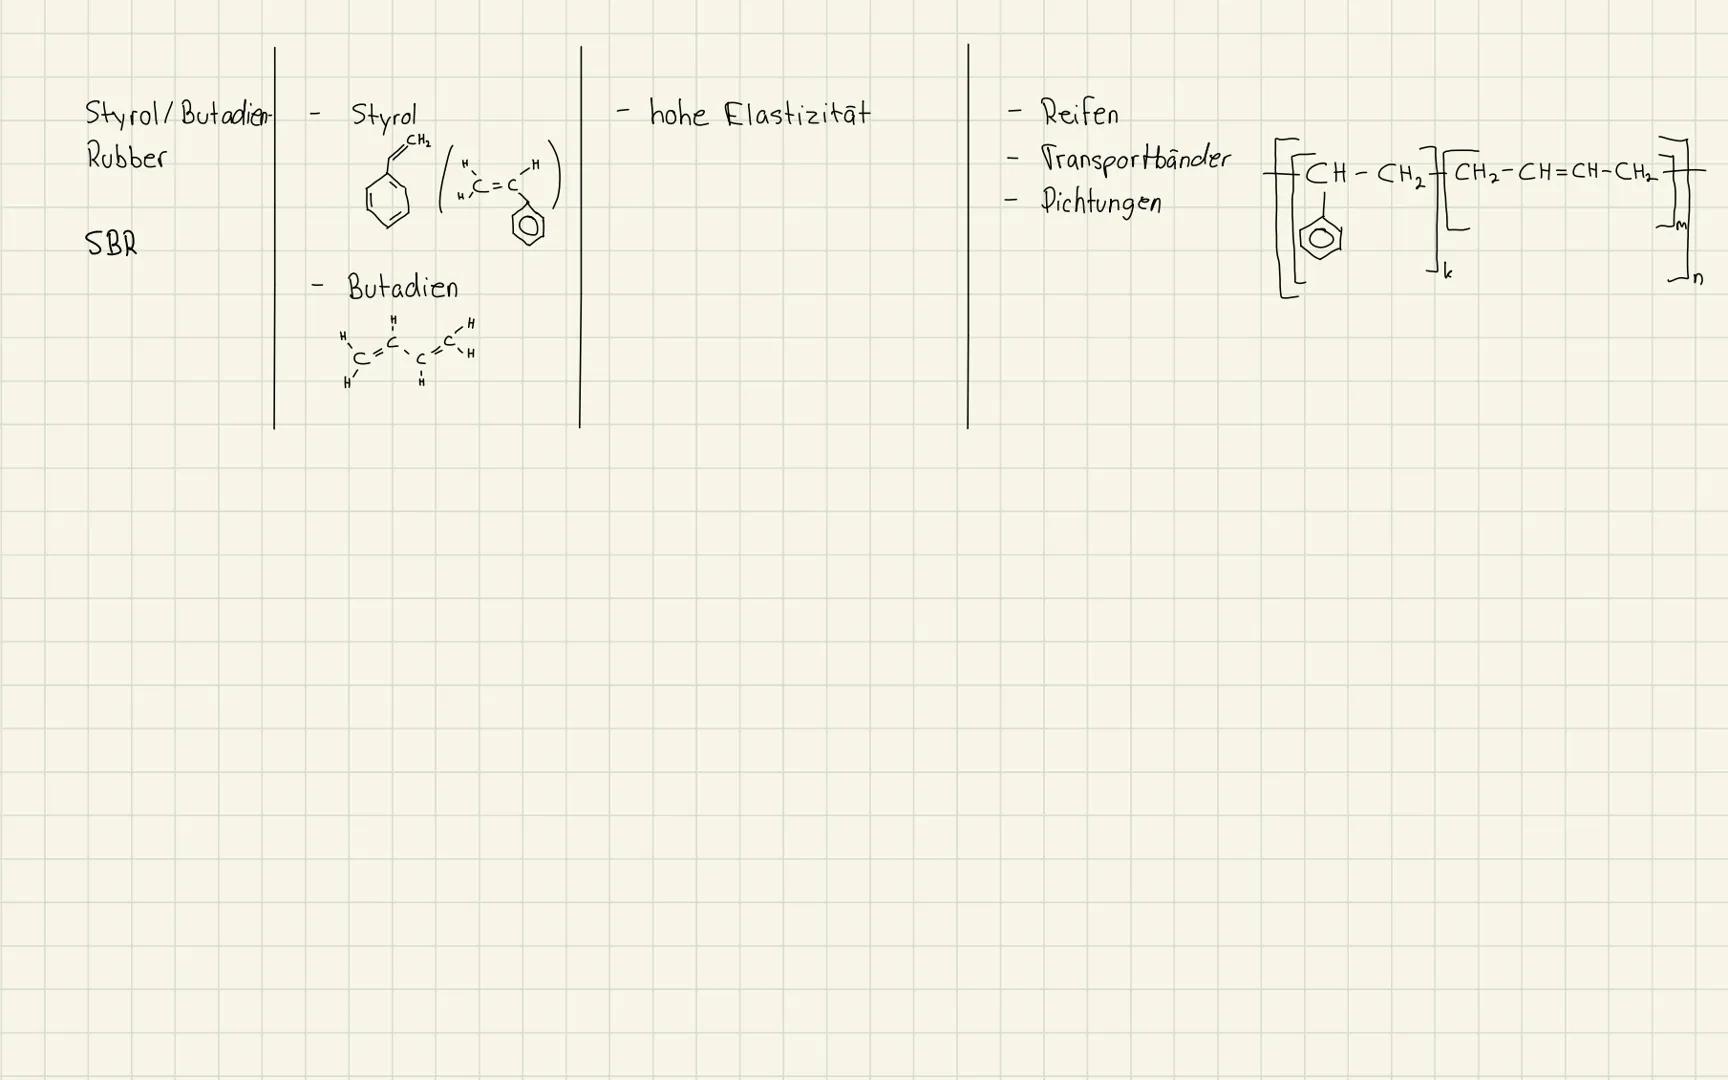 Styrol/Butadien-
Rubber
SBR
- Styrol
CH₂
H H
H C=C
- Butadien
H H H
H C=C C=C H
H H
- hohe Elastizität
- Reifen
- Transportbänder
- Dichtungen
[[CH-CH₂]k[CH₂-CH=CH-CH₂]m]n